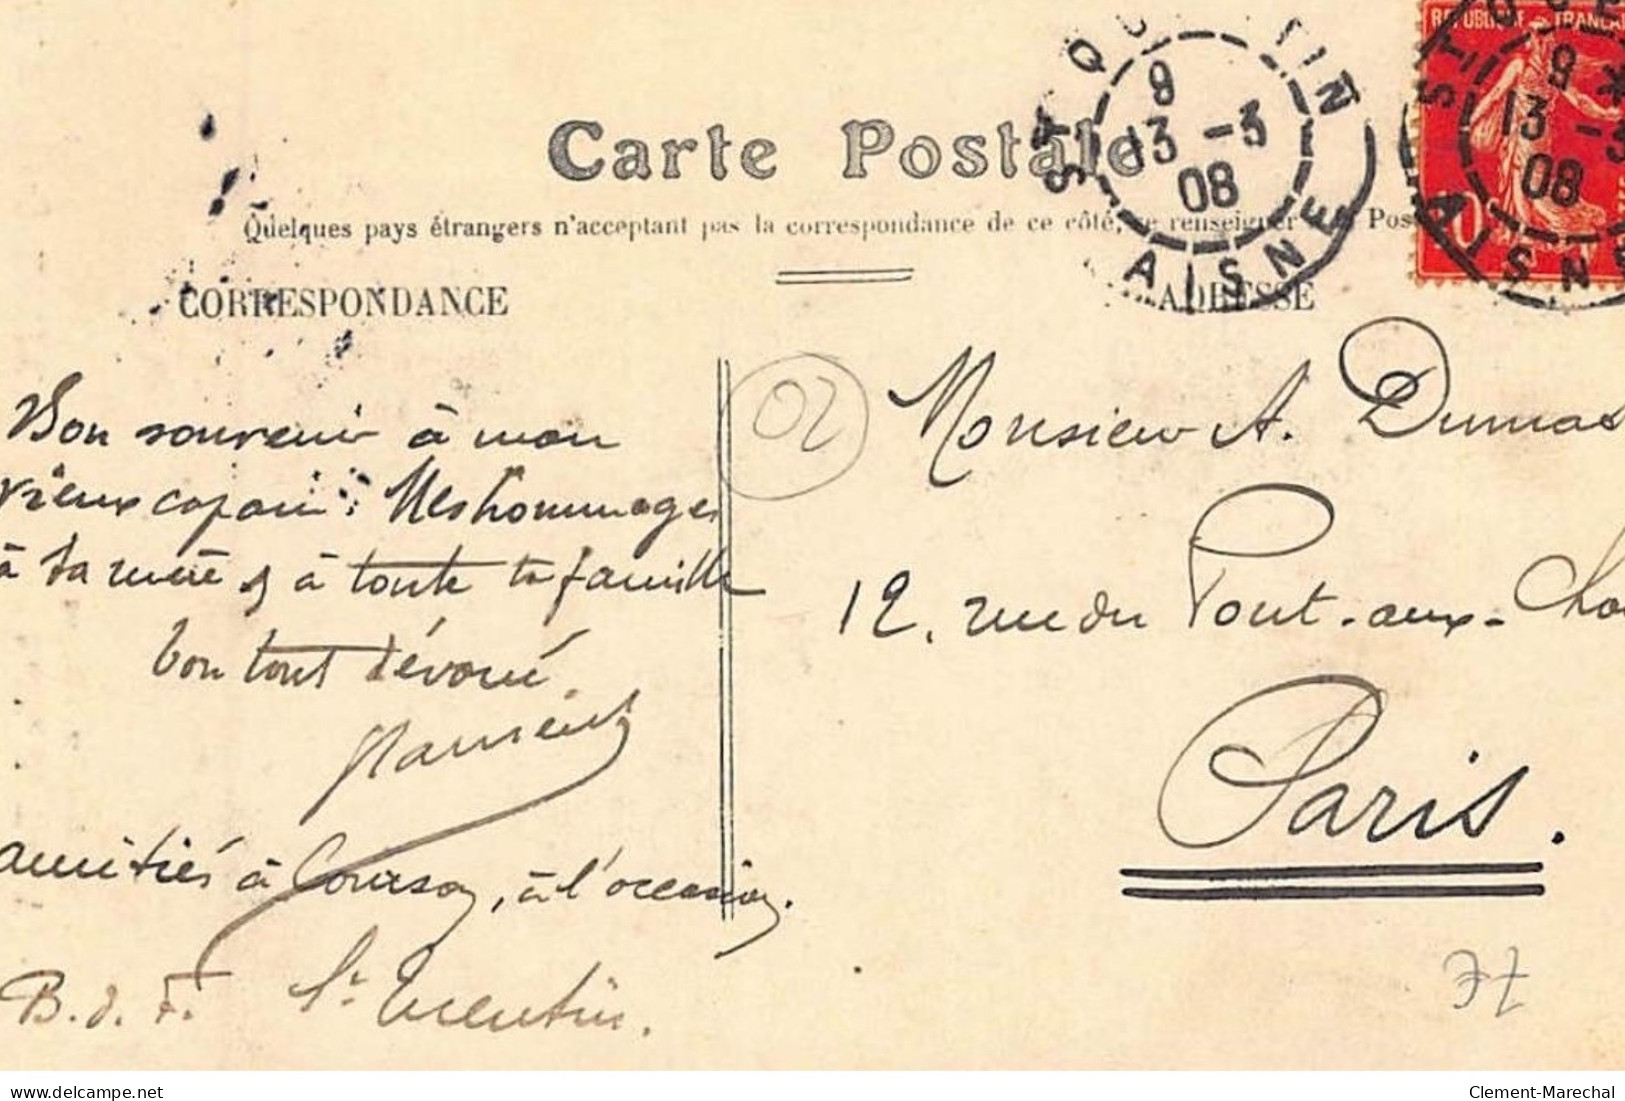 Carte Postale
Quelques pays étrangers n'acceptent pas la correspondance de ce côté, se renseigner
CORRESPONDANCE
ADRESSE
ST QUENTIN
9
13 -3
08
AISNE
RÉPUBLIQUE FRANÇAI
ST QUE
9 *
13 -3
08
AISN
02
Bon souvenir à mon
vieux copain. Mes hommages
à ta mère & à toute ta famille
bon tout dévoué.
amitiés à Courson, à l'occasion.
B. d. F. St Quentin.
Monsieur A. Dumas
12, rue du Pont-aux-Chou
Paris.
delcampe.net
Clement-Marechal